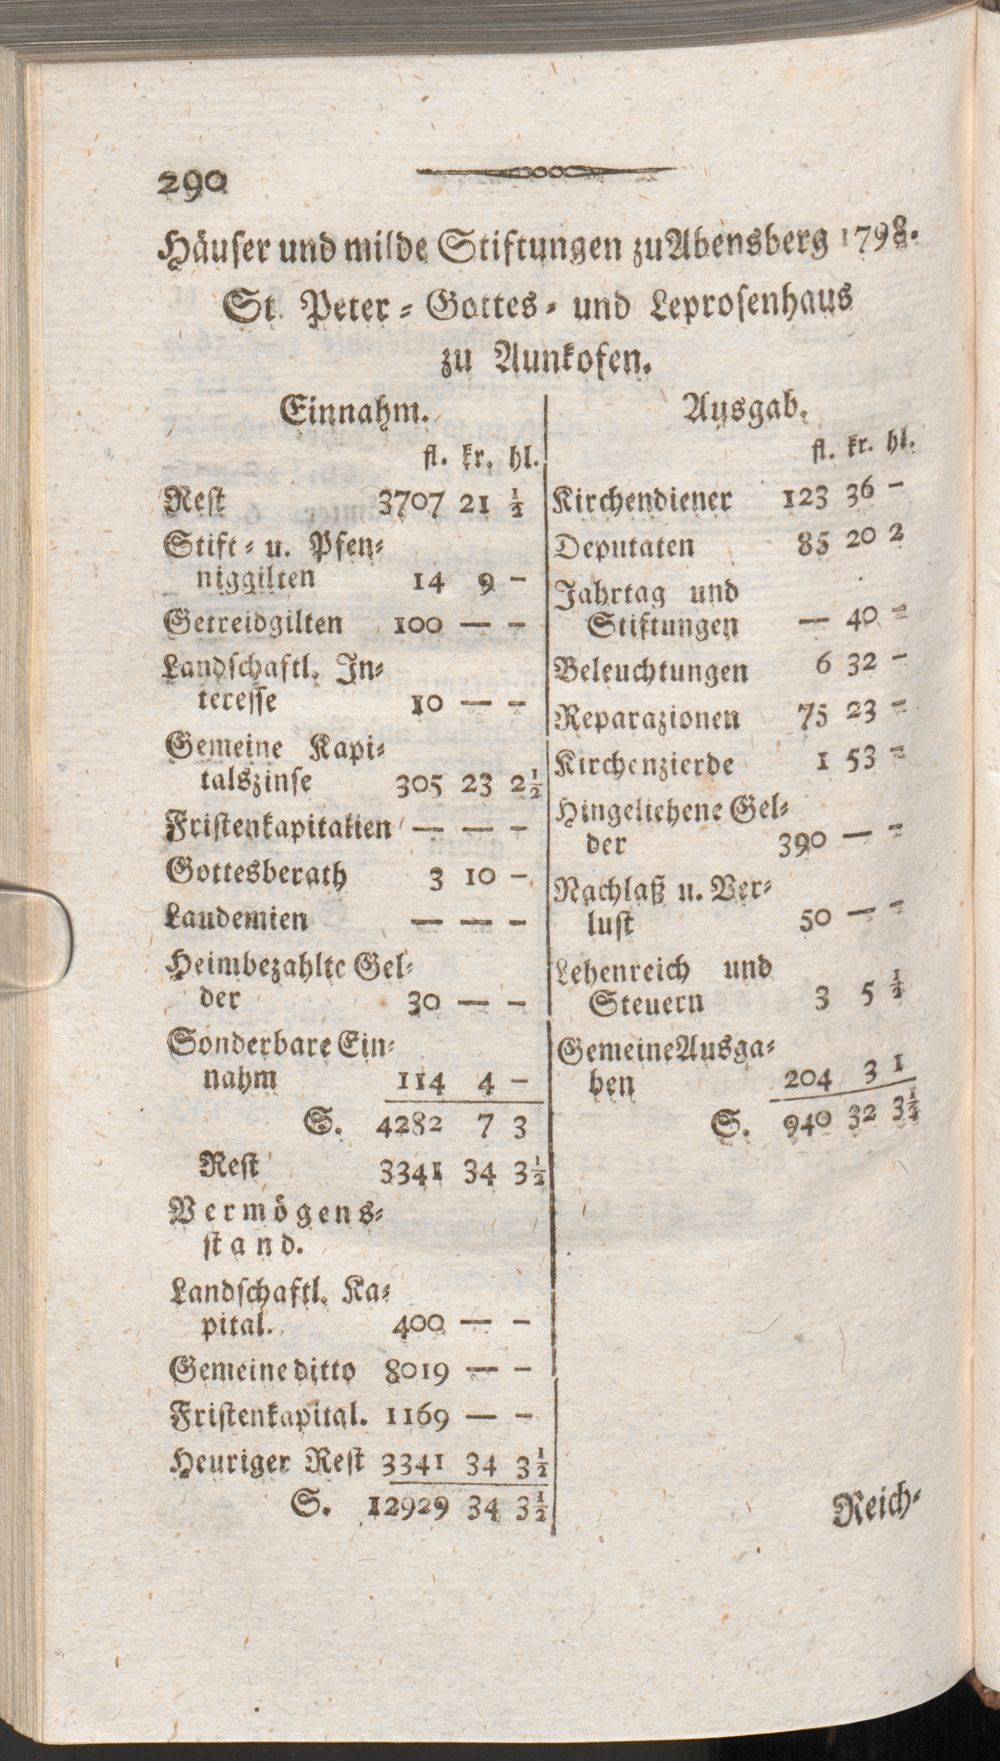 290
Häuser und milde Stiftungen zu Abensberg 1798.
St. Peter⸗ Gottes⸗ und Leprosenhaus
zu Aunkofen.
Einnahm.
fl. kr. hl.
Rest 3707 21 ½
Stift⸗ u. Pfen⸗
niggilten 14 9 –
Getreidgilten 100 — –
Landschaftl. In⸗
teresse 10 — –
Gemeine Kapi⸗
talszinse 305 23 2½
Fristenkapitalien — — –
Gottesberath 3 10 –
Laudemien — — –
Heimbezahlte Gel⸗
der 30 — –
Sonderbare Ein⸗
nahm 114 4 –
S. 4282 7 3
Rest 3341 34 3½
Vermögens⸗
stand.
Landschaftl. Ka⸗
pital. 400 — –
Gemeine ditto 8019 — –
Fristenkapital. 1169 — –
Heuriger Rest 3341 34 3½
S. 12929 34 3½
Ausgab.
fl. kr. hl.
Kirchendiener 123 36 –
Deputaten 85 20 2
Jahrtag und
Stiftungen — 40 –
Beleuchtungen 6 32 –
Reparazionen 75 23 –
Kirchenzierde 1 53 –
Hingeliehene Gel⸗
der 390 — –
Nachlaß u. Ver⸗
lust 50 — –
Lehenreich und
Steuern 3 5 ½
Gemeine Ausga⸗
ben 204 3 1
S. 940 32 3½
Reich⸗